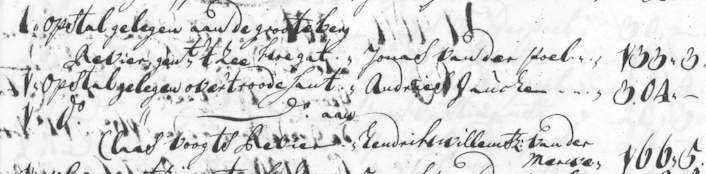 1„ opstal gelegen aan de groote berg
Revier gent: t' Zee koegat „ Jonas van der Poel „ „ 133„ 3„
1„ opstal gelegen over t roode sant „ Andries Jancke „ 304„ –
1„ do „ do aan
Claas Voogts Revier „ Hendrik Willemsz: van der
Merwe „ 166„ 5„